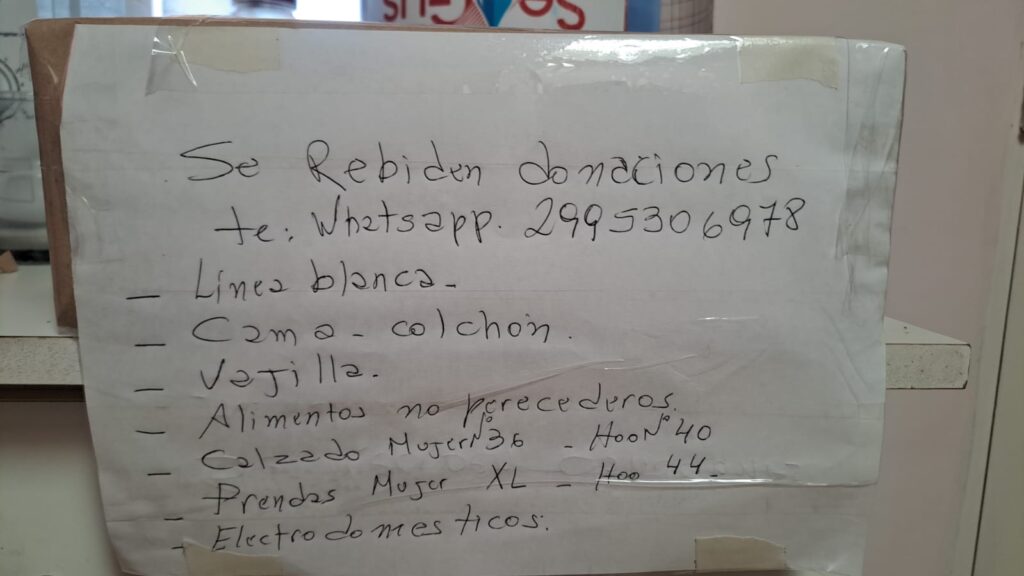 Se Rebiden donaciones
te: Whatsapp. 2995306978
— Linea blanca -
— Cama - colchón.
— Vajilla.
— Alimentos no perecederos.
— Calzado Mujer Nº 36 - Hoo Nº 40
— Prendas Mujer XL - Hoo 44-
- Electrodomésticos.